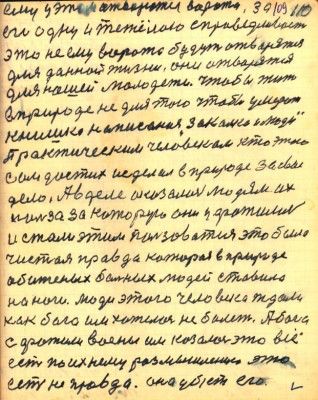 ему уже затворятся ворота, 39/09 110
его одну и тяжёлою справедливость
это не ему ворота будут отварятся
для данной жизни, они отварятся
для нашей молодежи. чтобы жит
в природе не для того чтобы умерат
книшко написания, "закалка и люди"
Практическим человеком кто это
сам достих и сделал в природе за свае
дело, А в деле оказалос людям их
полза за которую они удротилис
и стали этим ползоватся это было
чистая правда которая в природе
обиженых балных людей ставила
на ноги. люди этого человека ждали
как бога им хотелося не болет. А бога
с дротили воены им казалос это всё
ест по ихнему размышлению это
ест не правда. она убёт его.